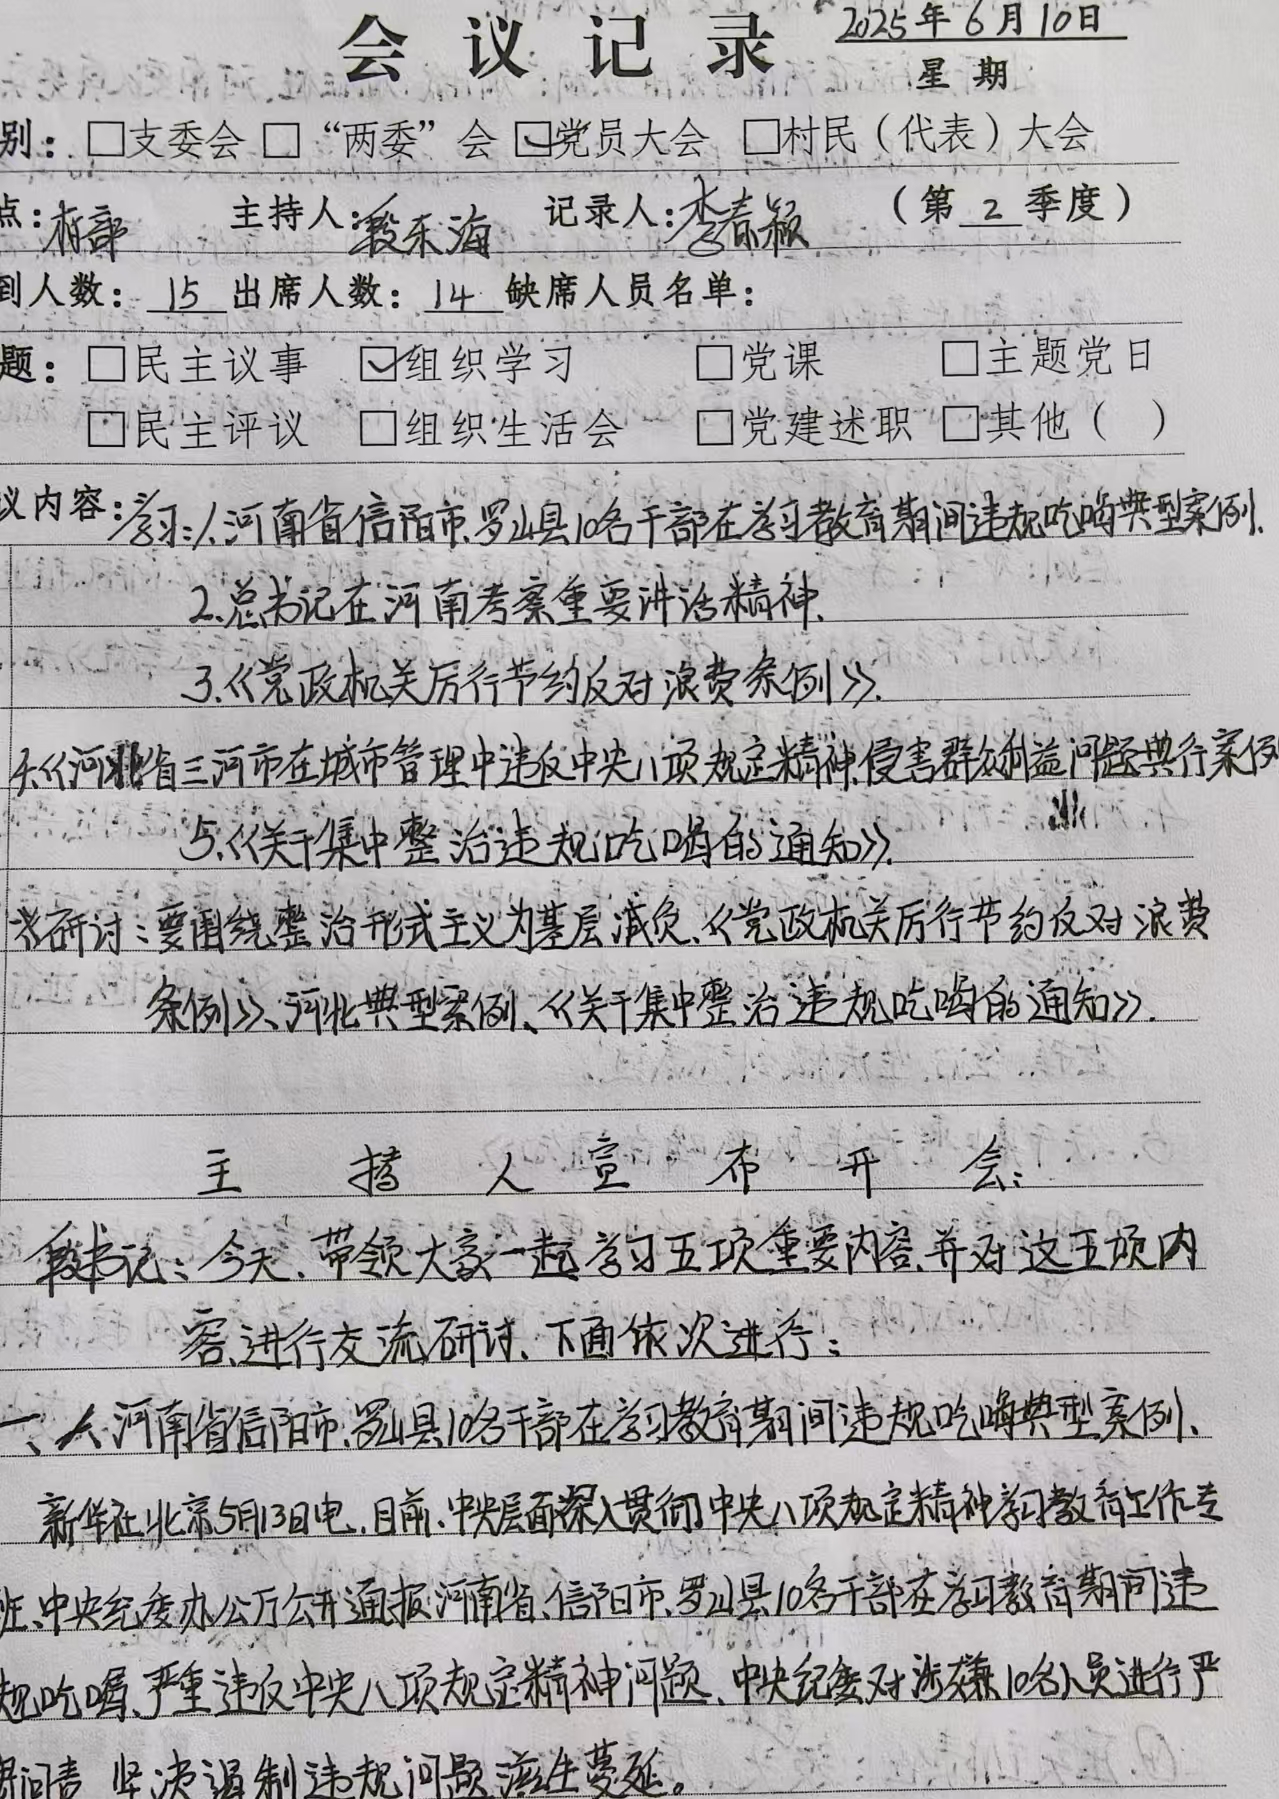 会议记录 2025年6月10日
星期
别：□支委会 □“两委”会 ☑党员大会 □村民（代表）大会
点：村部 主持人：段东海 记录人：李春颖 （第2季度）
到人数：15 出席人数：14 缺席人员名单：
题：□民主议事 ☑组织学习 □党课 □主题党日
□民主评议 □组织生活会 □党建述职 □其他（ ）
议内容：学习：1.河南省信阳市、罗山县10名干部在学习教育期间违规吃喝典型案例.
2.总书记在河南考察重要讲话精神.
3.《党政机关厉行节约反对浪费条例》.
4.《河北省三河市在城市管理中违反中央八项规定精神、侵害群众利益问题典行案例
5.《关于集中整治违规吃喝的通知》.
研讨：要围绕整治形式主义为基层减负、《党政机关厉行节约反对浪费
条例》、河北典型案例、《关于集中整治违规吃喝的通知》.
主持人宣布开会：
段书记：今天、带领大家一起学习五项重要内容、并对这五项内
容、进行交流研讨、下面依次进行：
一、河南省信阳市、罗山县10名干部在学习教育期间违规吃喝典型案例、
新华社北京5月13日电、目前、中央层面深入贯彻中央八项规定精神学习教育工作专
班、中央纪委办公厅公开通报河南省、信阳市、罗山县10名干部在学习教育期间违
规吃喝、严重违反中央八项规定精神问题、中央纪委对涉嫌10名人员进行严
肃问责 坚决遏制违规问题滋生蔓延。